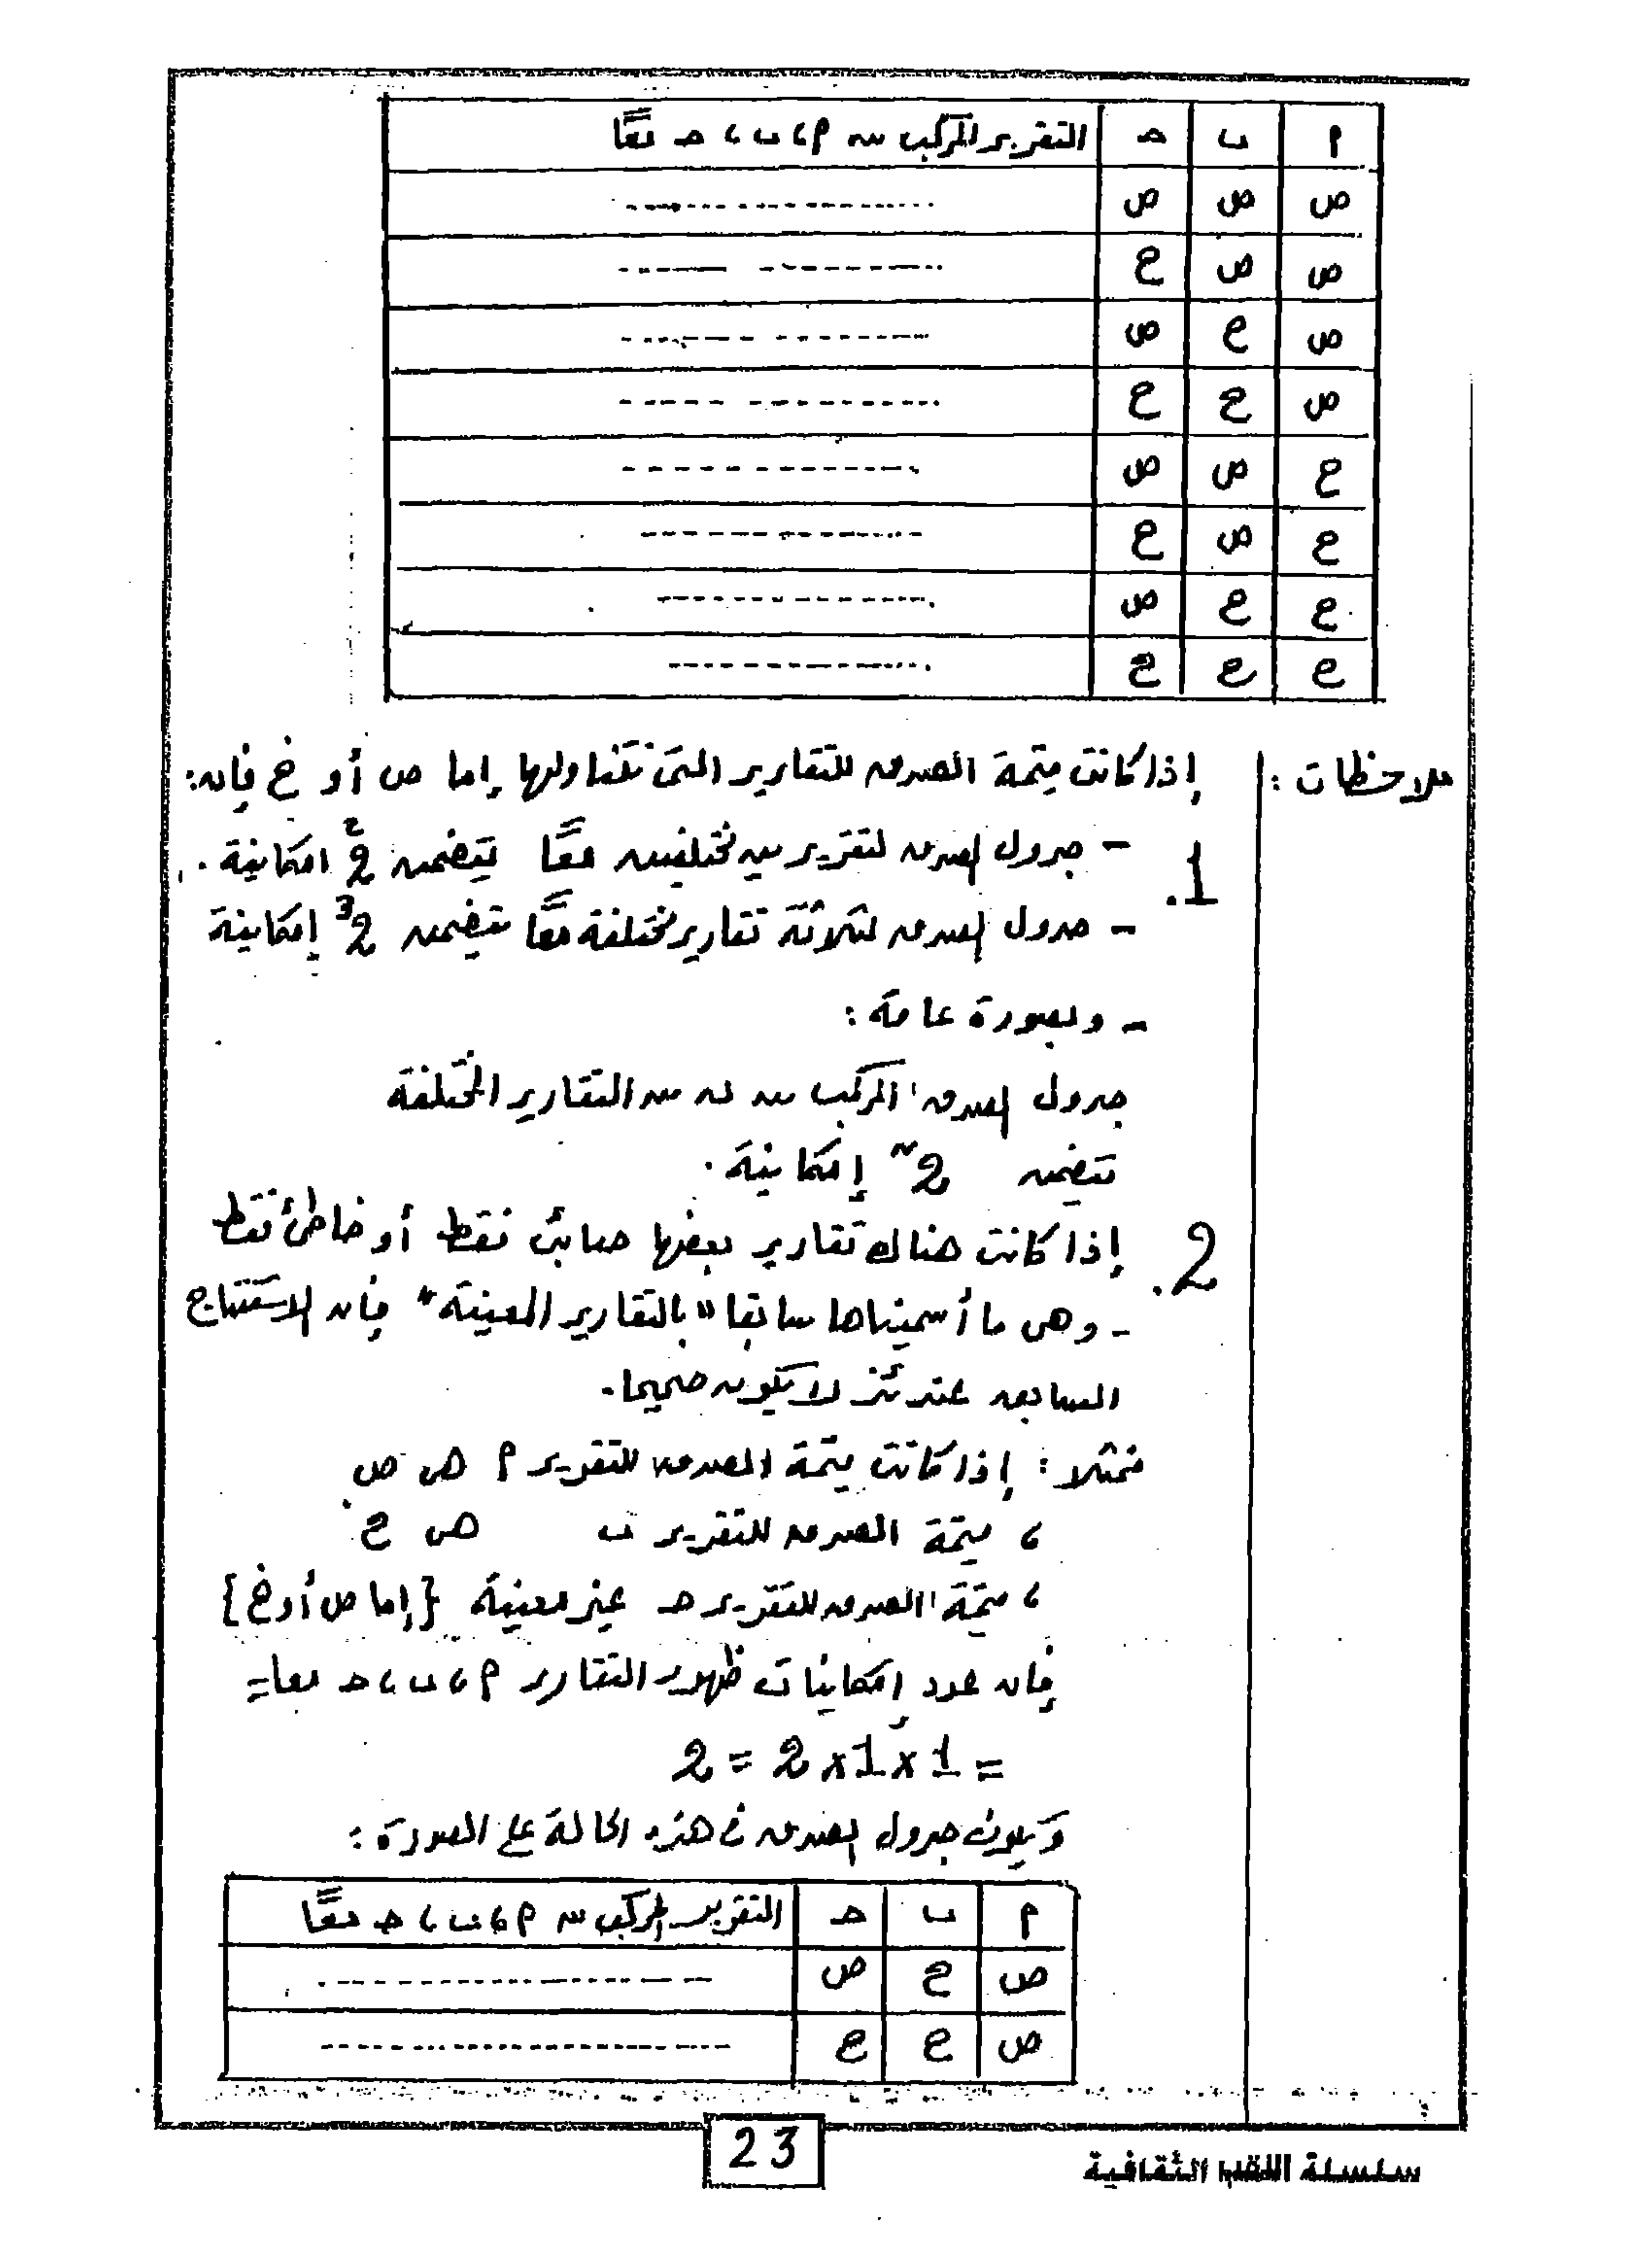 م ب حـ التقرير المركب من م، ب، حـ معًا
ص ص ص ....................
ص ص خ ....................
ص خ ص ....................
ص خ خ ....................
خ ص ص ....................
خ ص خ ....................
خ خ ص ....................
خ خ خ ....................
ملاحظات : إذا كانت قيمة الصدق للتقارير التى نتناولها إما ص أو خ فإن:
1. - جدول الصدق لتقريرين مختلفين معًا يتضمن 2² امكانية .
- جدول الصدق لثلاثة تقارير مختلفة معًا يتضمن 2³ إمكانية
- وبصورة عامة :
جدول الصدق المركب من ن من التقارير المختلفة
تتضمن 2ⁿ إمكانية .
2. إذا كانت هناك تقارير بعضها صائب فقط أو خاطئ فقط
- وهى ما أسميناها سابقا "بالتقارير المعينة" فإن الاستنتاج
السابق عندئذ لا يكون صحيحا .
فمثلا : إذا كانت قيمة الصدق للتقرير م هى ص
، قيمة الصدق للتقرير ب هى خ
، قيمة الصدق للتقرير حـ غير معينة {إما ص أو خ}
فإن عدد إمكانيات ظهور التقارير م، ب، حـ معا =
= 1 × 1 × 2 = 2
ويكون جدول الصدق فى هذه الحالة على الصورة :
م ب حـ التقرير المركب من م، ب، حـ معًا
ص خ ص ....................
ص خ خ ....................
23
سلسلة اللقب الثقافية